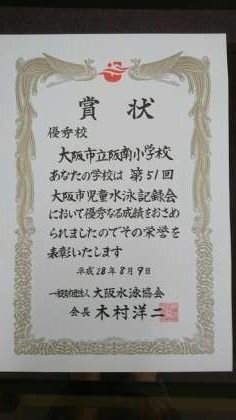 賞状
優秀校
大阪市立阪南小学校
あなたの学校は第51回
大阪市児童水泳記録会
において優秀なる成績をおさめ
られましたのでその栄誉を
表彰いたします
平成28年8月9日
一般財団法人 大阪水泳協会
会長 木村洋二